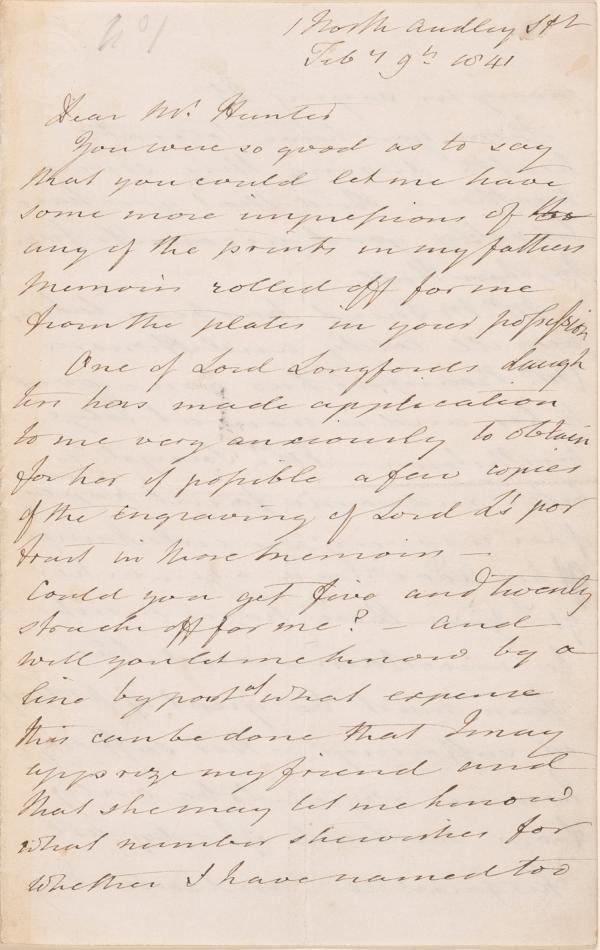 1 North Audley St
Feby 9th 1841
Dear Mr Hunter
You were so good as to say
that you could let me have
some more impressions of the
any of the prints in my fathers
Memoirs rolled off for me
from the plates in your possession
One of Lord Longfords daugh
ters has made application
to me very anxiously to obtain
for her if possible a few copies
of the engraving of Lord L's por
trait in those Memoirs —
Could you get five and twenty
struck off for me? — and
will you let me know by a
line by post at what expense
this can be done that I may
apprize my friend and
that she may let me know
what number she wishes for
whether I have named too